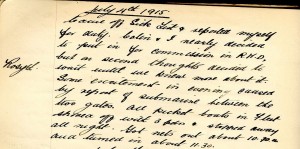 July 4th 1915
Came off Sick List & reported myself
for duty. Colin & I nearly decided
to put in for commission in R.N.D.
but on second thoughts decided to
wait until we knew more about it.
Rosyth. Some excitement in evening caused
by report of submarine between the
two gates. All picket boats in Fleet
shoved off with a bomb & stayed away
all night. Got nets out about 10.30 pm
and turned in about 11.30.